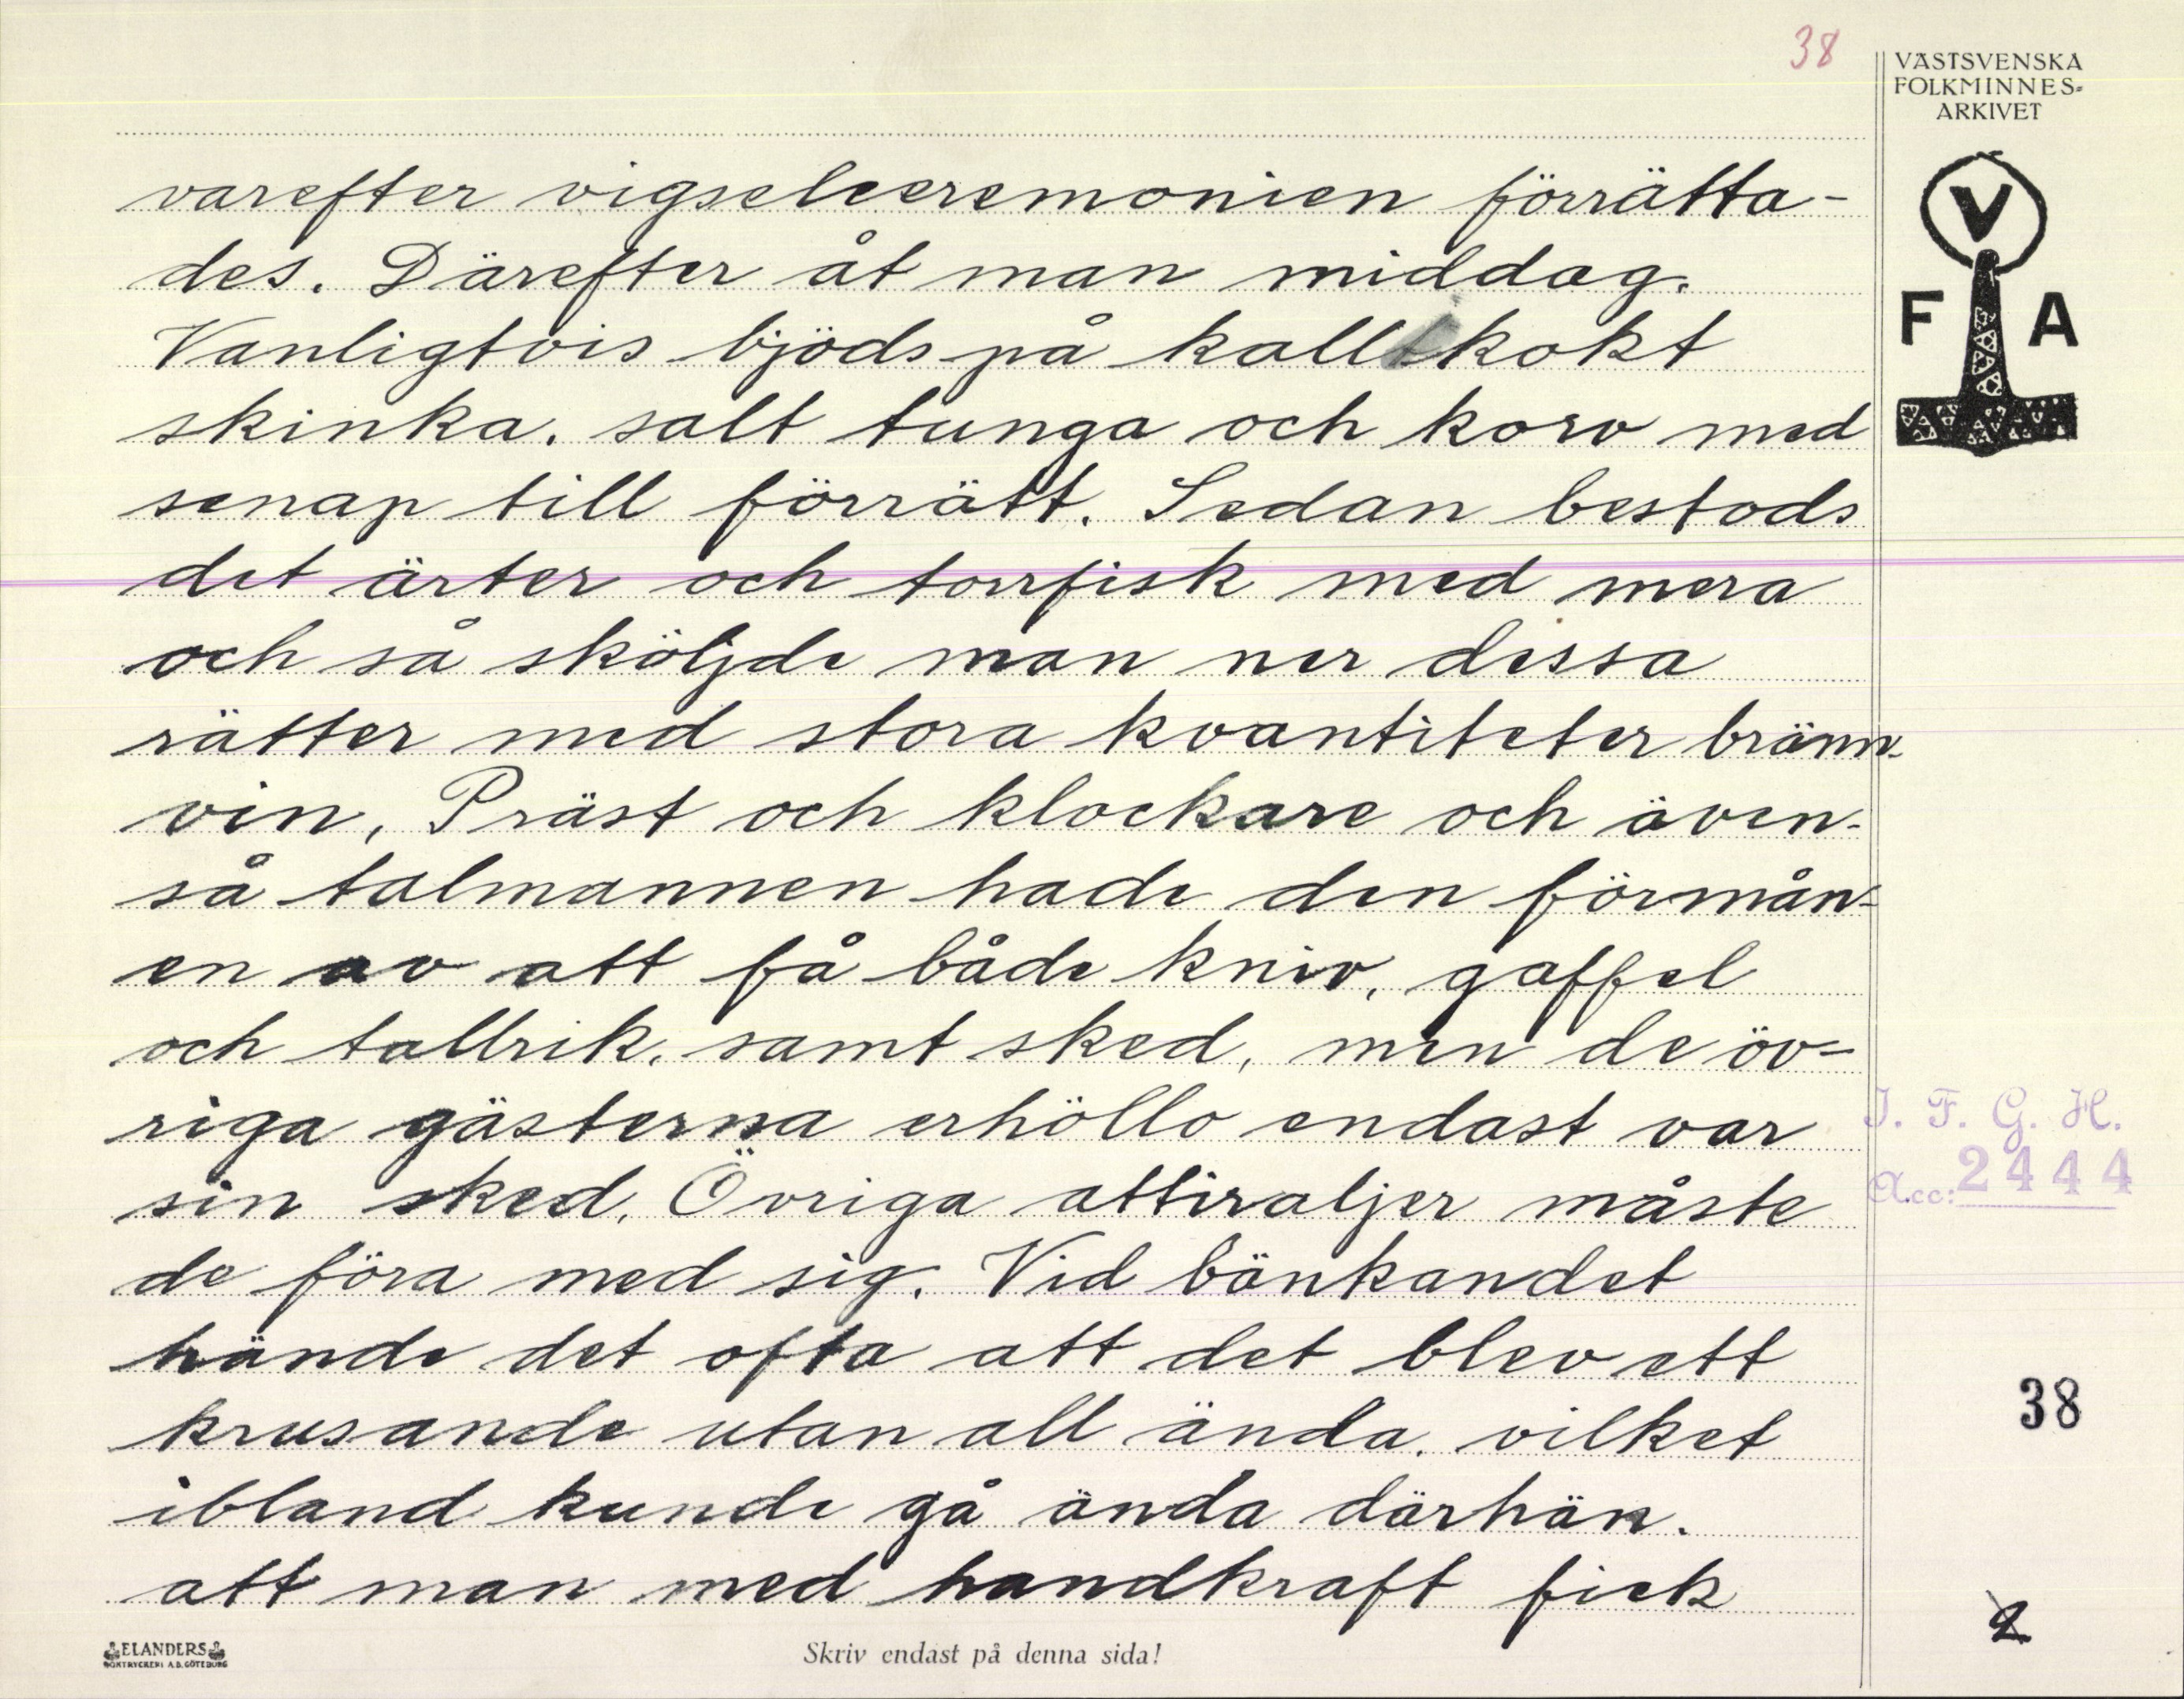 38
VÄSTSVENSKA
FOLKMINNES-
ARKIVET
V
F A
varefter vigselceremonien förrätta-
des. Därefter åt man middag.
Vanligtvis bjöds på kallkokt
skinka, salt tunga och korv med
senap till förrätt. Sedan bestods
det ärter och torrfisk med mera
och så sköljde man ner dessa
rätter med stora kvantiteter bränn-
vin. Präst och klockare och även-
så talmannen hade den förmån-
en av att få både kniv, gaffel
och tallrik, samt sked, men de öv-
riga gästerna erhöllo endast var
sin sked. Övriga attiraljer måste
de föra med sig. Vid bänkandet
hände det ofta att det blev ett
krusande utan all ända, vilket
ibland kunde gå ända därhän,
att man med handkraft fick
I. F. G. H.
Acc: 2444
38
2
ELANDERS
BOKTRYCKERI A.B. GÖTEBORG
Skriv endast på denna sida!